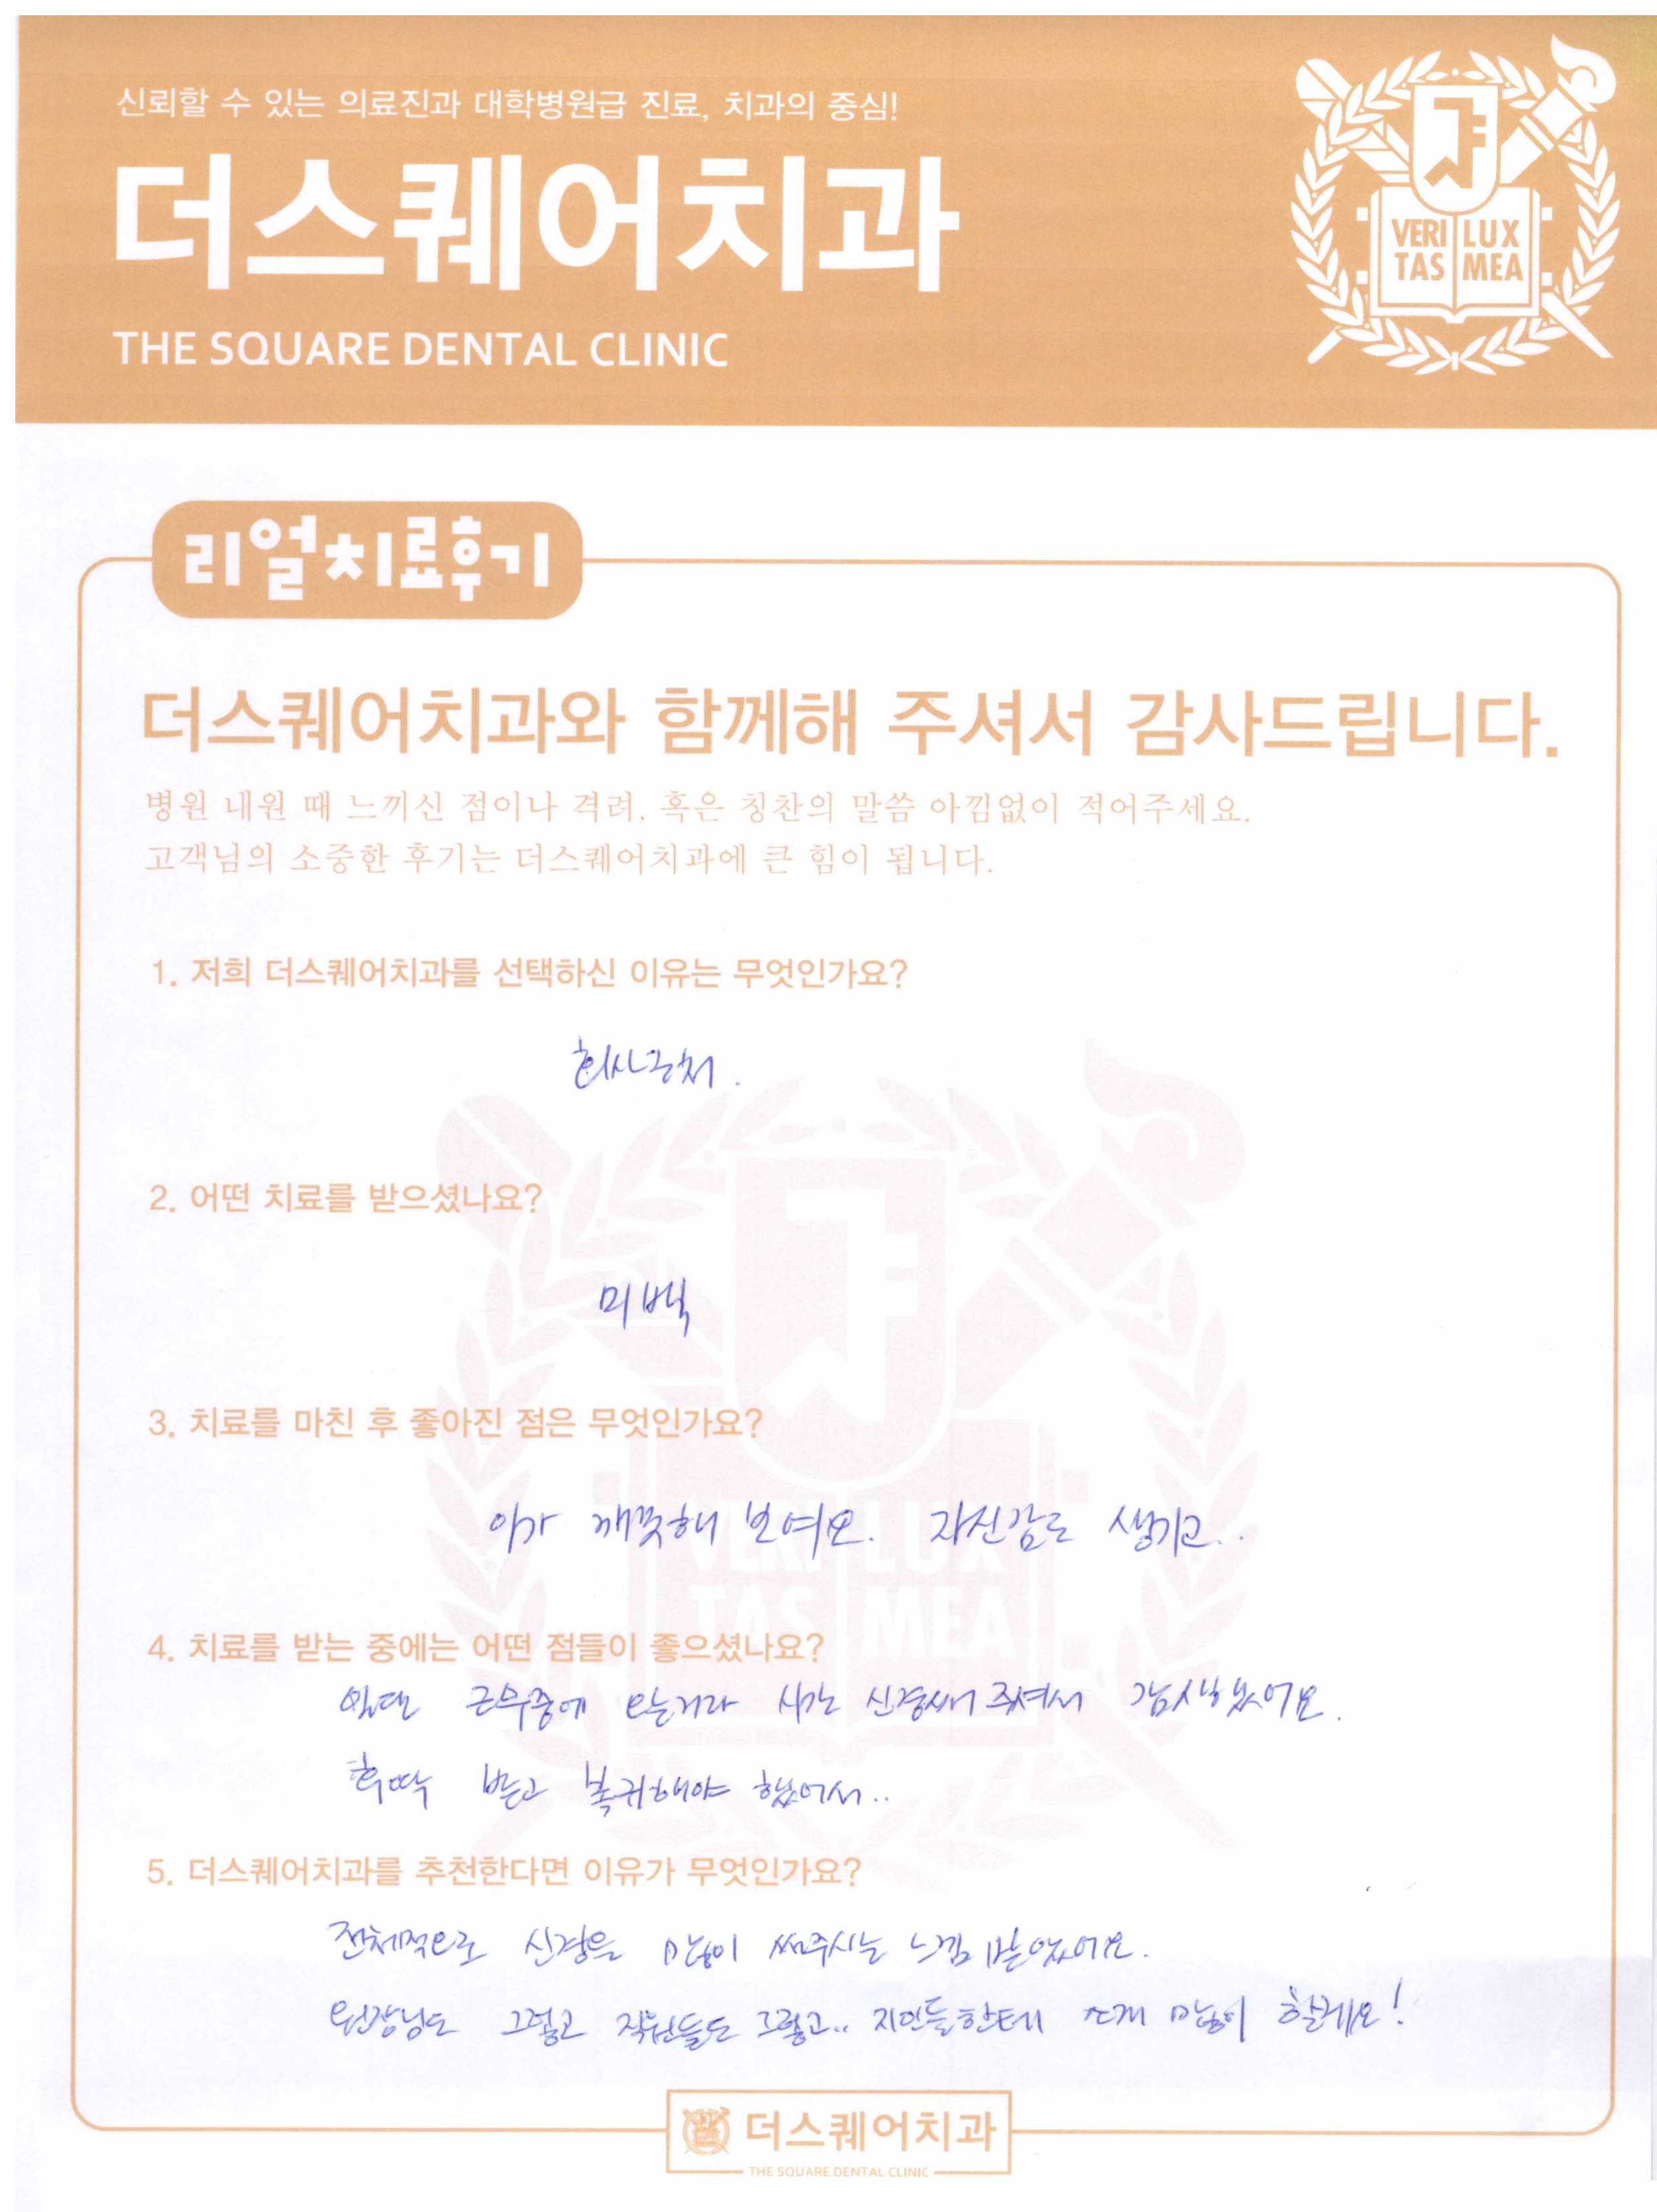 신뢰할 수 있는 의료진과 대학병원급 진료, 치과의 중심!
더스퀘어치과
THE SQUARE DENTAL CLINIC
VERI LUX
TAS MEA
리얼치료후기
더스퀘어치과와 함께해 주셔서 감사드립니다.
병원 내원 때 느끼신 점이나 격려, 혹은 칭찬의 말씀 아낌없이 적어주세요.
고객님의 소중한 후기는 더스퀘어치과에 큰 힘이 됩니다.
1. 저희 더스퀘어치과를 선택하신 이유는 무엇인가요?
회사근처.
2. 어떤 치료를 받으셨나요?
미백
3. 치료를 마친 후 좋아진 점은 무엇인가요?
이가 깨끗해 보여요. 자신감도 생기고..
VERI LUX
TAS MEA
4. 치료를 받는 중에는 어떤 점들이 좋으셨나요?
일단 근무중에 오는거라 시간 신경써 주셔서 감사했어요.
후딱 받고 복귀해야 했어서..
5. 더스퀘어치과를 추천한다면 이유가 무엇인가요?
전체적으로 신경을 많이 써주시는 느낌 받았어요.
원장님도 그렇고 직원들도 그렇고.. 지인들한테 소개 많이 할게요!
더스퀘어치과
THE SQUARE DENTAL CLINIC